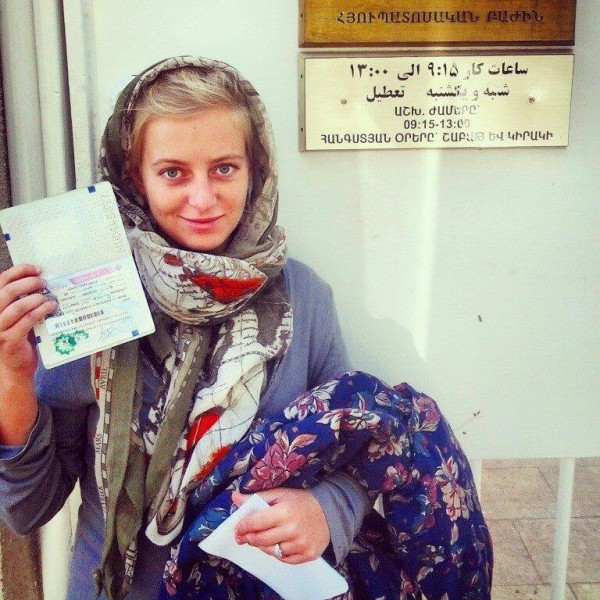 ՀՅՈՒՊԱՏՈՍԱԿԱՆ ԲԱԺԻՆ
ساعات کار ۹:۱۵ الی ۱۳:۰۰
شنبه و یکشنبه تعطیل
ԱՇԽ. ԺԱՄԵՐԸ՝
09:15-13:00
ՀԱՆԳՍՏՅԱՆ ՕՐԵՐԸ՝ ՇԱԲԱԹ ԵՎ ԿԻՐԱԿԻ